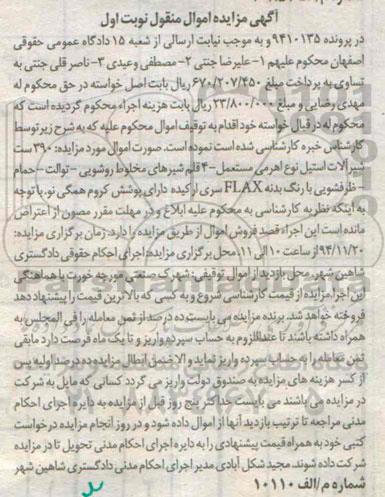 آگهی مزایده اموال منقول نوبت اول
در پرونده ۹۴۱۰۱۳۵ و به موجب نیابت ارسالی از شعبه ۱۵ دادگاه عمومی حقوقی
اصفهان محکوم علیهم ۱- علیرضا جنتی ۲- مصطفی وعیدی ۳- ناصر قلی جنتی به
تساوی به پرداخت مبلغ ۶۷۰/۲۰۷/۴۵۰ ریال بابت اصل خواسته در حق محکوم له
مهدی رضایی و مبلغ ۲۳/۸۰۰/۰۰۰ ریال بابت هزینه اجراء محکوم گردیده است که
محکوم له در قبال خواسته خود اقدام به توقیف اموال محکوم علیه که به شرح زیر توسط
کارشناس خبره کارشناسی شده است نموده است. صورت اموال مورد مزایده: ۳۹۰ ست
شیرآلات استیل نوع اهرمی مستعمل-۴ قلم شیرهای مخلوط روشویی - توالت - حمام
- ظرفشویی با رنگ بدنه FLAX سری ارکیده دارای پوشش کروم همگی نو، با توجه
به اینکه نظریه کارشناسی به محکوم علیه ابلاغ و در مهلت مقرر مصون از اعتراض
مانده است این اجراء قصد فروش اموال از طریق مزایده را دارد. زمان برگزاری مزایده:
۹۴/۱۱/۲۰ از ساعت ۱۰ الی ۱۱. محل برگزاری مزایده: اجرای احکام حقوقی دادگستری
شاهین شهر. محل بازدید از اموال توقیفی: شهرک صنعتی مورچه خورت با هماهنگی
این اجرا. مزایده از قیمت کارشناسی شروع و به کسی که بالاترین قیمت را پیشنهاد دهد
فروخته خواهد شد. برنده مزایده می بایست ده درصد از ثمن معامله را فی المجلس به
همراه داشته باشند تا عنداللزوم به حساب سپرده واریز و تا یک ماه فرصت دارد مابقی
ثمن معامله را به حساب سپرده واریز نماید و الا ضمن ابطال مزایده ده درصد اولیه پس
از کسر هزینه های مزایده به صندوق دولت واریز می گردد کسانی که مایل به شرکت
در مزایده می باشند می بایست حداکثر پنج روز قبل از مزایده به دایره اجرای احکام
مدنی مراجعه تا ترتیب بازدید آنها از اموال داده شود و در روز انجام مزایده درخواست
کتبی خود به همراه قیمت پیشنهادی را به دایره اجرای احکام مدنی تحویل تا در مزایده
شرکت داده شوند. مجید شکل آبادی مدیر اجرای احکام مدنی دادگستری شاهین شهر
شماره م/الف ۱۰۱۱۰